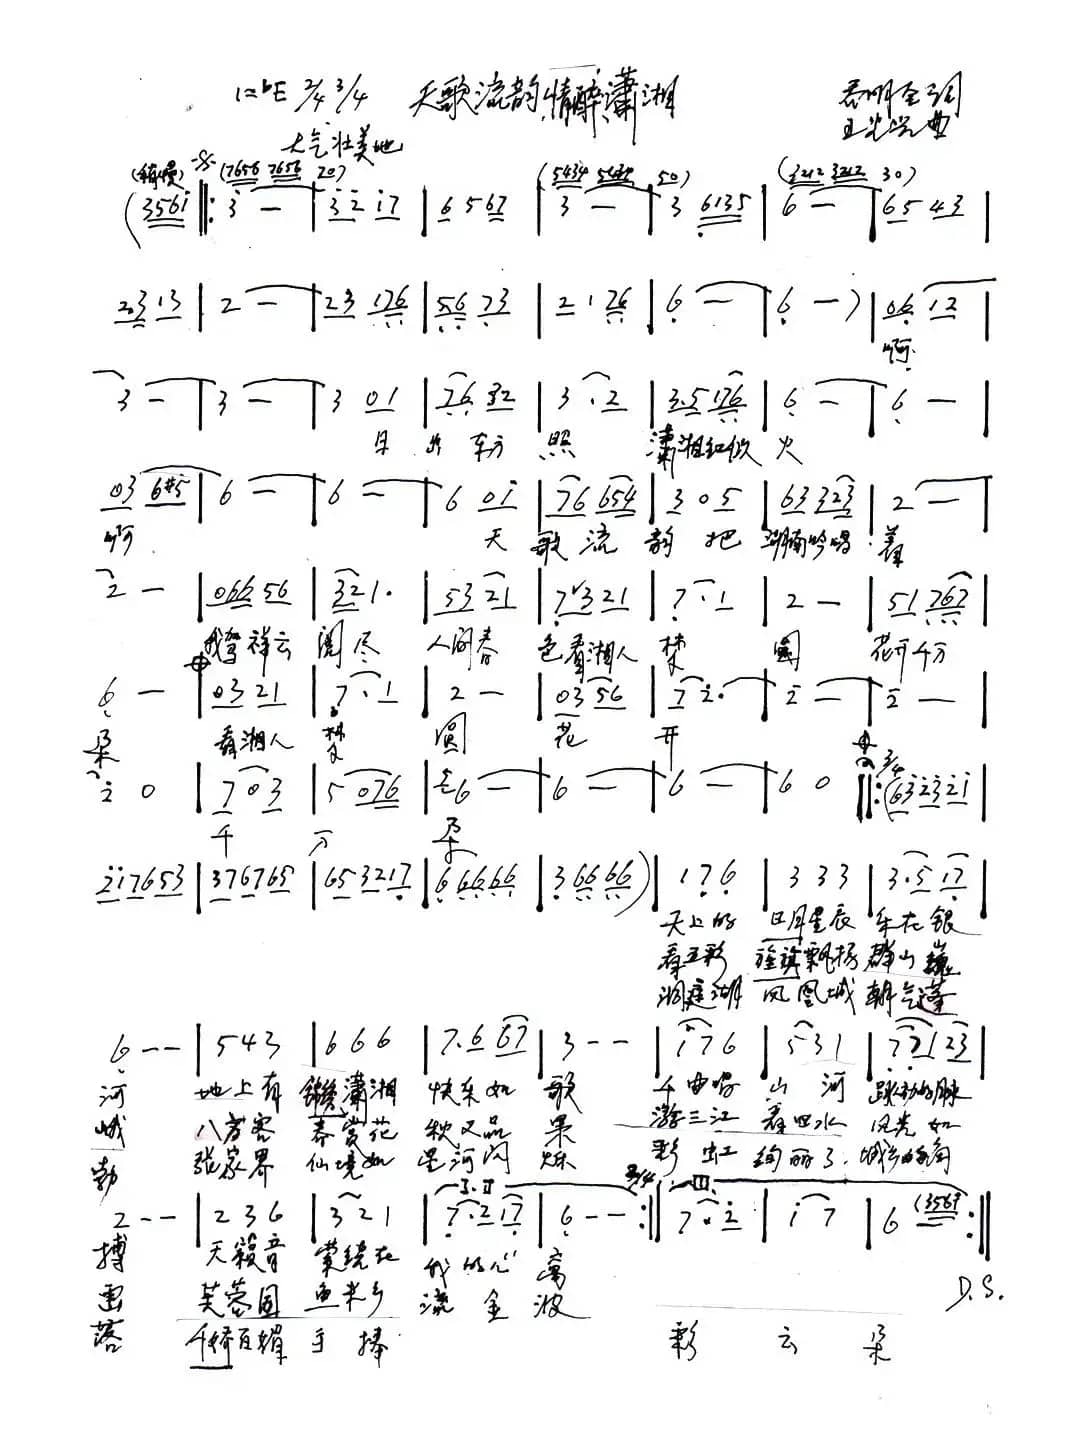 1=♭E 2/4 3/4 天歌流韵,情醉潇湘
词
曲
大气壮美地
(稍慢) (7656 7656 70) (5434 5434 50) (3212 3212 30)
(3561 ‖: 3 — | 32 17 | 6 567 | 3 — | 3 6135 | 6 — | 65 43 |
23 13 | 2 — | 23 176 | 56 73 | 2 176 | 6 — | 6 —) | 06 12 |
啊
3 — | 3 — | 3 01 | 76 32 | 3 · 2 | 3.5 176 | 6 — | 6 — |
日出东方 照 潇湘红似火
03 6#5 | 6 — | 6 — | 6 0i | 76 654 | 3 05 | 63 323 | 2 — |
啊 天歌流韵把湖南吟唱着
2 — | 066 56 | 321· | 53 21 | 7 321 | 7 · 1 | 2 — | 51 767 |
我驾祥云阅尽 人间春色看湘人梦 圆 花开千万
6 — | 03 21 | 7 · 1 | 2 — | 03 56 | 7 2· | 2 — | 2 — |
朵 看湘人梦 圆 花 开
3/4
2 0 | 7 03 | 5 076 | 6 — | 6 — | 6 — | 6 0 ‖: (632321 |
千 万 朵
217653 | 376765 | 653217 | 666666 | 36666) | 176 | 333 | 3.5 17 |
天上的 日月星辰 乐在银
看五彩 旌旗飘扬 群山巍
洞庭湖 凤凰城 朝气蓬
6 — — | 543 | 666 | 7.6 67 | 3 — — | 176 | 531 | 77123 |
河 地上有 锦绣潇湘 快乐如 歌 千曲唱 山 河 跳动的脉
峨 八方客 春赏花 秋又品 果 游三江 看四水 风光如
勃 张家界 仙境如 星河闪 烁 彩 虹 绚丽了 城乡
I.II 2/4 III
2 — — | 236 | 321 | 7.217 | 6 — — :‖ 7 · 2 | 17 | 6 (3567 :‖
搏 天籁音 萦绕在 我的心 窝
画 芙蓉国 鱼米乡 流金 波
D.S.
落 千娇百媚 手 捧 彩 云 朵